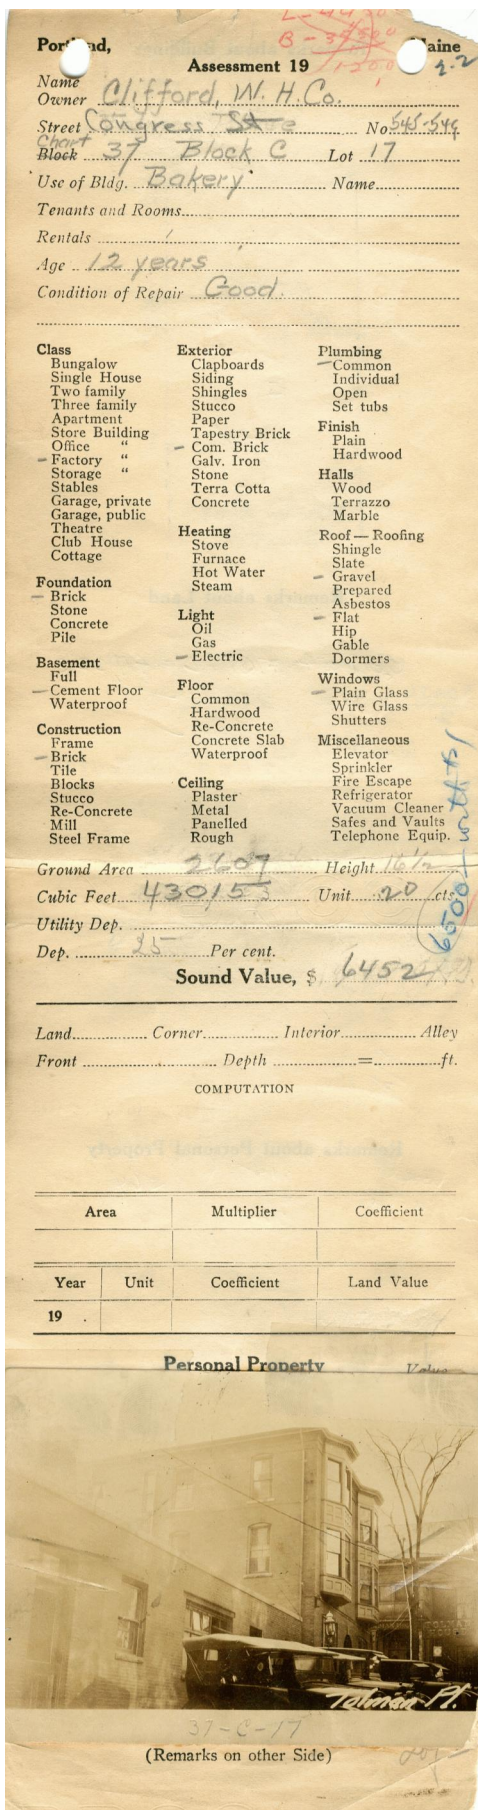 Portland, Maine
B - 34500
1200
2.2
Assessment 19
Name
Owner Clifford, W. H. Co.
Street Congress St No 545-549
Chart
Block 37 Block C Lot 17
Use of Bldg. Bakery Name
Tenants and Rooms
Rentals
Age 12 years
Condition of Repair Good.
Class
Bungalow
Single House
Two family
Three family
Apartment
Store Building
Office "
- Factory "
Storage "
Stables
Garage, private
Garage, public
Theatre
Club House
Cottage
Foundation
- Brick
Stone
Concrete
Pile
Basement
Full
- Cement Floor
Waterproof
Construction
Frame
- Brick
Tile
Blocks
Stucco
Re-Concrete
Mill
Steel Frame
Exterior
Clapboards
Siding
Shingles
Stucco
Paper
Tapestry Brick
- Com. Brick
Galv. Iron
Stone
Terra Cotta
Concrete
Heating
Stove
Furnace
Hot Water
Steam
Light
Oil
Gas
- Electric
Floor
Common
Hardwood
Re-Concrete
Concrete Slab
Waterproof
Ceiling
Plaster
Metal
Panelled
Rough
Plumbing
- Common
Individual
Open
Set tubs
Finish
Plain
Hardwood
Halls
Wood
Terrazzo
Marble
Roof — Roofing
Shingle
Slate
- Gravel
Prepared
Asbestos
- Flat
Hip
Gable
Dormers
Windows
- Plain Glass
Wire Glass
Shutters
Miscellaneous
Elevator
Sprinkler
Fire Escape
Refrigerator
Vacuum Cleaner
Safes and Vaults
Telephone Equip.
6500 - worth this
Ground Area 2607 Height 16½
Cubic Feet 43015 Unit 20 cts
Utility Dep.
Dep. 25 Per cent.
Sound Value, $ 6452
Land Corner Interior Alley
Front Depth = ft.
COMPUTATION
Area Multiplier Coefficient
Year Unit Coefficient Land Value
19 .
Personal Property Value
Tolman Pl.
37-C-17
(Remarks on other Side)